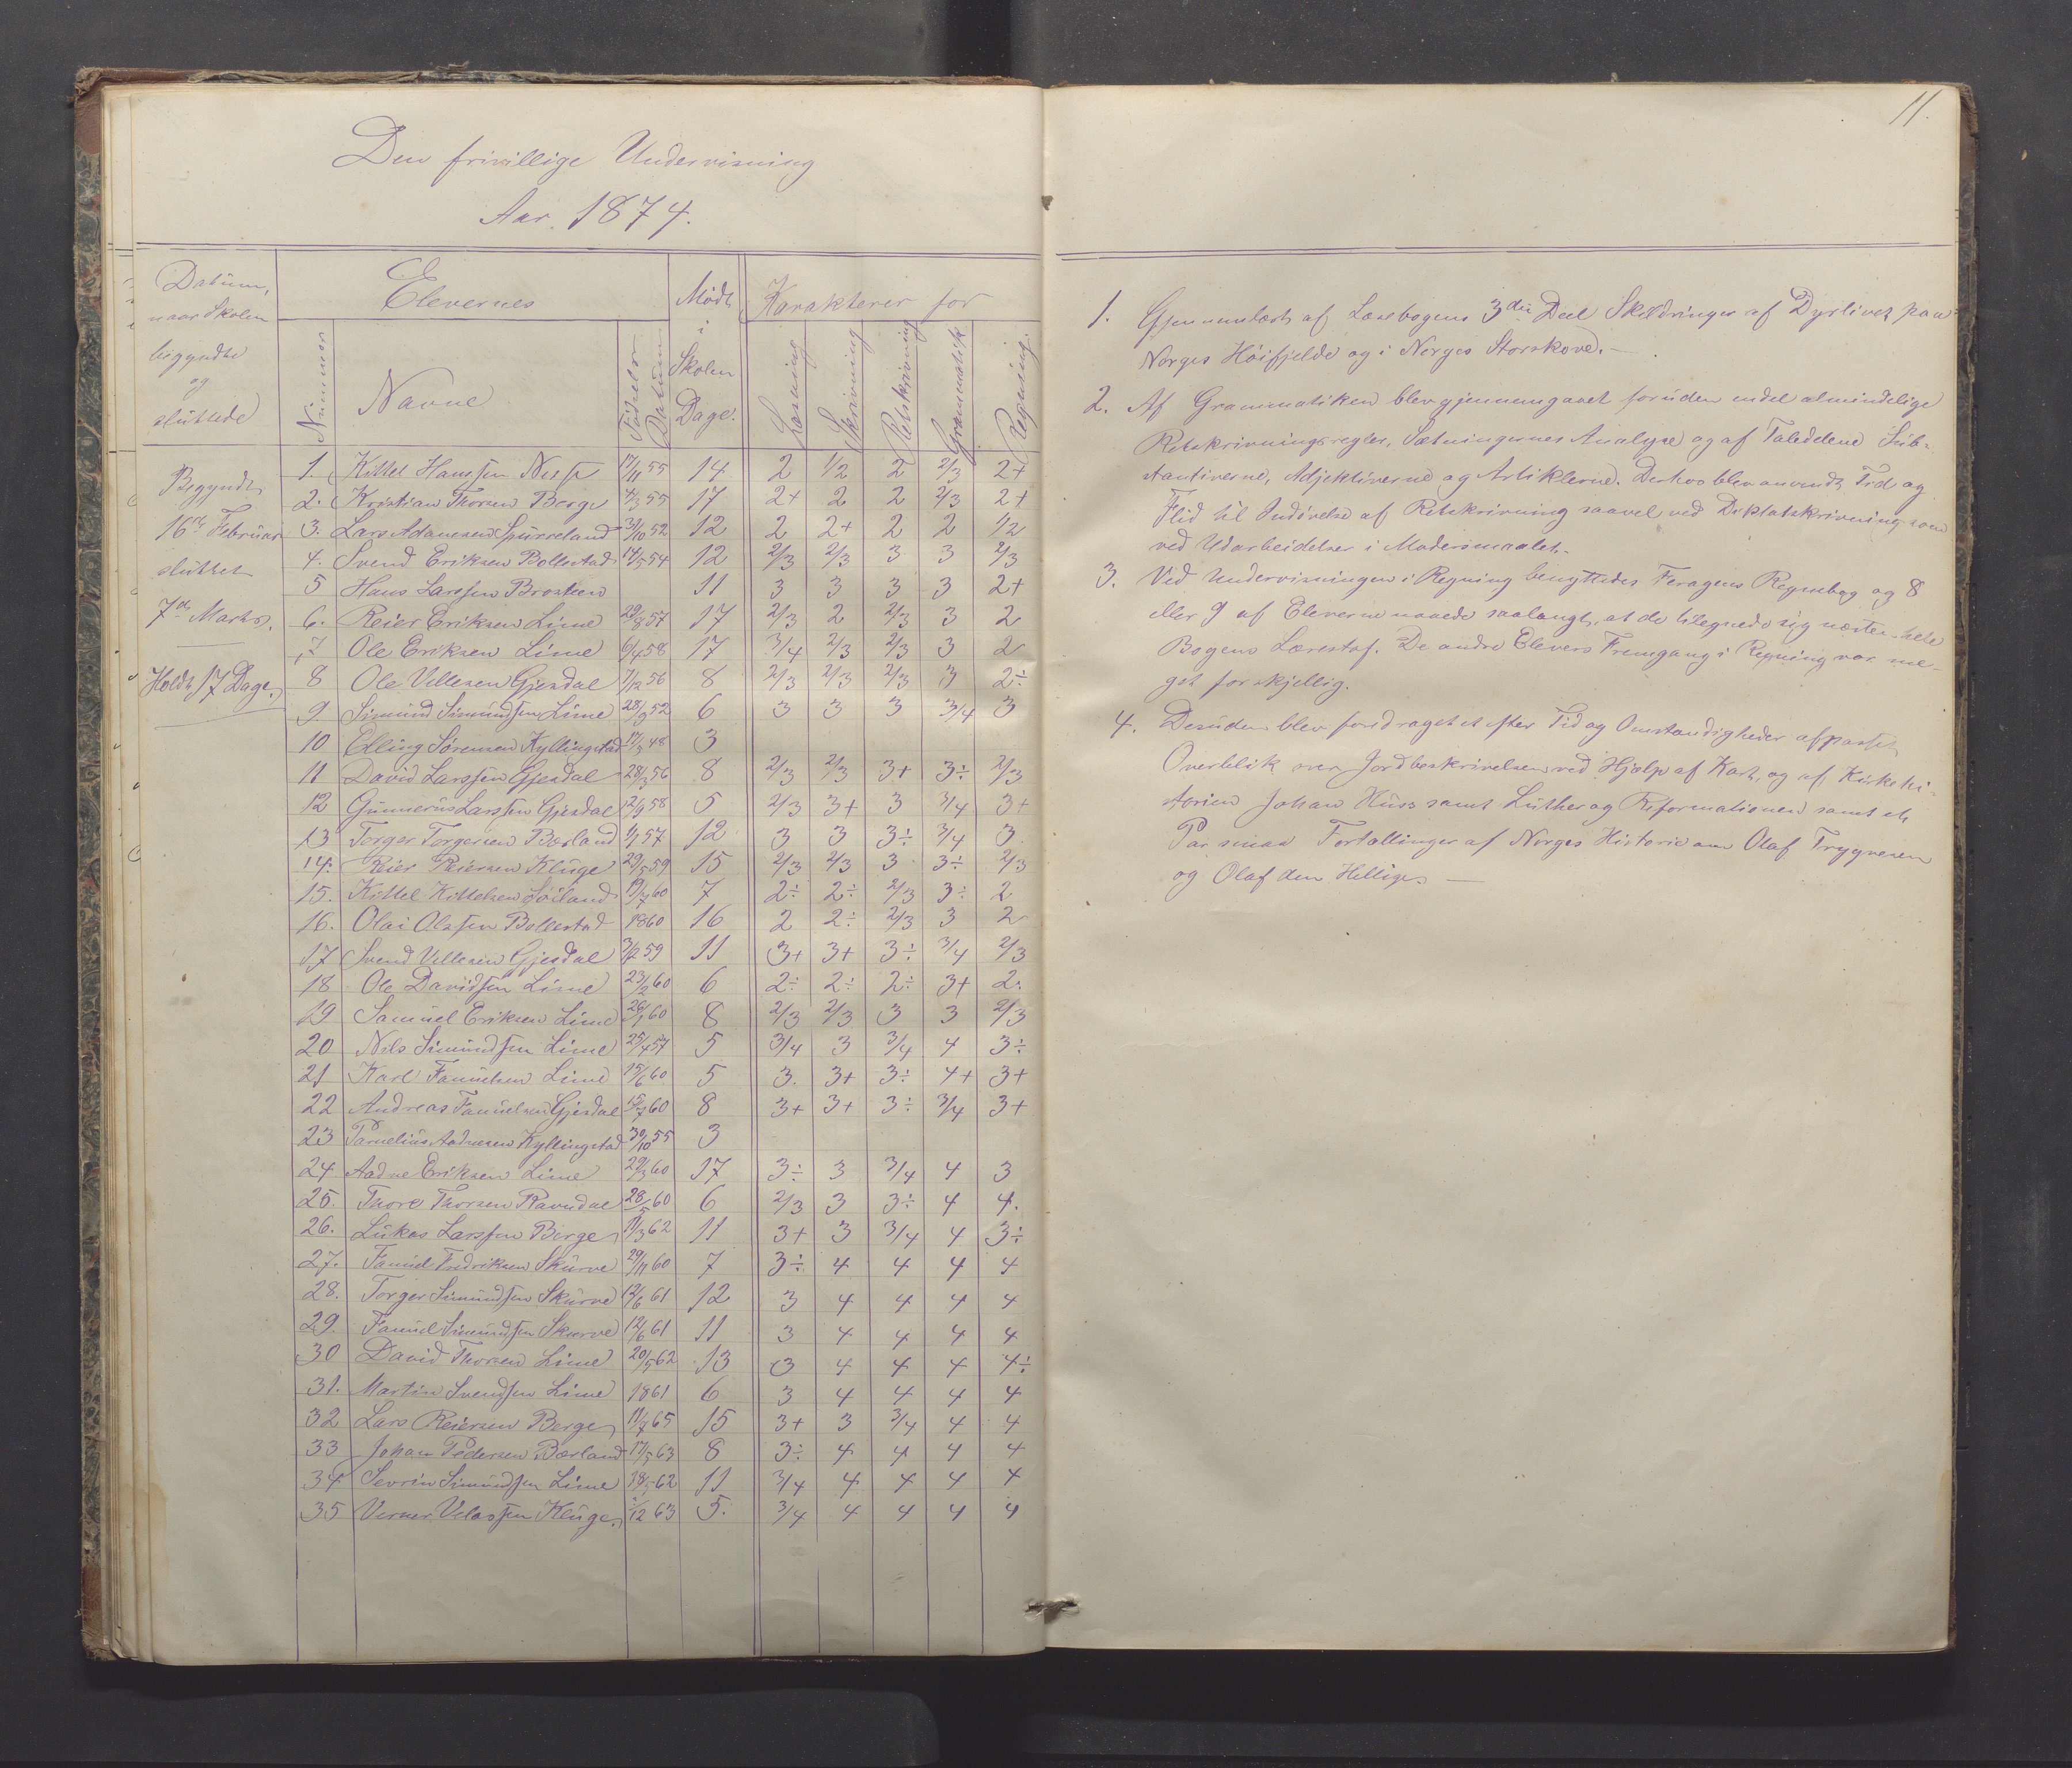 Den frivillige Undervisning
Aar. 1874.
Datum, naar Skolen begyndte og sluttede
Elevernes
Mødt i Skolen Dage.
Karakterer for
Nummer
Navne
Fødsels Datum
Læsning
Skrivning
Retskrivning
Grammatik
Regning.
Begyndt
16de Februar
sluttet
7de Marts.
Holdt 17 Dage.
1. Kittel Hanssen 17/11 55 14 2 1/2 2 2/3 2+
2. Kristian Thorsen Berge 4/3 55 17 2+ 2 2 2/3 2+
3. Lars Adamsen Spurreland 3/10 52 12 2 2+ 2 2 1/2
4. Svend Eriksen Bollestad 14/5 54 12 2/3 2/3 3 3 2/3
5 Hans Larssen Brosteen 11 3 3 3 3 2+
6. Reier Eriksen Lime 29/8 57 17 2/3 2 2/3 3 2
7 Ole Eriksen Lime 6/4 58 17 3/4 2/3 2/3 3 2
8 Ole Villesen Gjesdal 7/12 56 8 2/3 2/3 2/3 3 2÷
9 Simund Simundsen Lime 28/9 52 6 3 3 3 3/4 3
10 Elling Sørensen Kyllingstad 17/3 48 3
11 David Larssen Gjesdal 28/3 56 8 2/3 2/3 3+ 3÷ 2/3
12 Gunnerius Larssen Gjesdal 12/9 58 5 2/3 3+ 3 3/4 3+
13 Torger Torgersen Bærland 1/1 57 12 3 3 3÷ 3/4 3
14. Reier Reiersen Kluge 29/5 59 15 2/3 2/3 3 3÷ 2/3
15. Kittel Kittelsen Søiland 19/7 60 7 2÷ 2÷ 2/3 3÷ 2
16. Olai Olassen Bollestad 1860 16 2 2÷ 2/3 3 2
17 Svend Villesen Gjesdal 3/12 59 11 3+ 3+ 3÷ 3/4 2/3
18 Ole Davidsen Lime 23/2 60 6 2÷ 2÷ 2÷ 3+ 2÷
19 Samuel Eriksen Lime 26/1 60 8 2/3 2/3 3 3 2/3
20 Nils Simundsen Lime 25/4 57 5 3/4 3 3/4 4 3÷
21 Karl Faniulsen Lime 15/6 60 5 3. 3+ 3÷ 4+ 3+
22 Andreas Faniulsen Gjesdal 15/7 60 8 3+ 3+ 3÷ 3/4 3+
23 Parnelius Aadnesen Kyllingstad 30/10 55 3
24 Aadne Eriksen Lime 29/3 60 17 3÷ 3 3/4 4 3
25. Thore Thorsen Ravndal 28/5 60 6 2/3 3 3÷ 4 4.
26. Lukas Larssen Berge 11/3 62 11 3+ 3 3/4 4 3÷
27. Faniul Fredriksen Skurve 29/11 60 7 3÷ 4 4 4 4
28. Torger Simundsen Skurve 12/6 61 12 3 4 4 4 4
29. Faniul Simundsen Skurve 12/6 61 11 3 4 4 4 4
30 David Thorsen Lime 20/5 62 13 3 4 4 4 4÷
31. Martin Svendsen Lime 1861 6 3 4 4 4 4
32 Lars Reiersen Berge 11/7 65 15 3+ 3 3/4 4 4
33 Johan Pedersen Bærland 17/5 63 8 3÷ 4 4 4 4
34 Sevrin Simundsen Lime 18/5 62 11 3/4 4 4 4 4
35 Verner Velassen Kluge 1/12 63 5. 3/4 4 4 4 4
11.
1. Gjennemlæst af Læsebogens 3die Deel Skildringer af Dyrlivet paa
Norges Höifjelde og i Norges Storskove. —
2. Af Grammatiken blev gjennemgaaet foruden endel almindelige
Retskrivningsregler, Sætningernes Analyse og af Taledelene Sub-
stantiverne, Adjektiverne og Artiklerne. Derhos blev anvendt Tid og
Flid til Indøvelse af Retskrivning saavel ved Diktatskrivning som
ved Udarbeidelser i Modersmaalet.
3. Ved Undervisningen i Regning benyttedes Feragens Regnebog og 8
eller 9 af Eleverne naaede saalangt, at de tilegnede sig næsten hele
Bogens Lærestof. De andre Elevers Fremgang i Regning var me-
get forskjellig.
4. Desuden blev foredraget et efter Tid og Omstændigheder afpasset
Overblik over Jordbeskrivelsen ved Hjælp af Kart, og af Kirkehi-
storien Johan Huss samt Luther og Reformationen samt et
Par smaa Fortællinger af Norges Historie om Olaf Trygvesen
og Olaf den Hellige. —